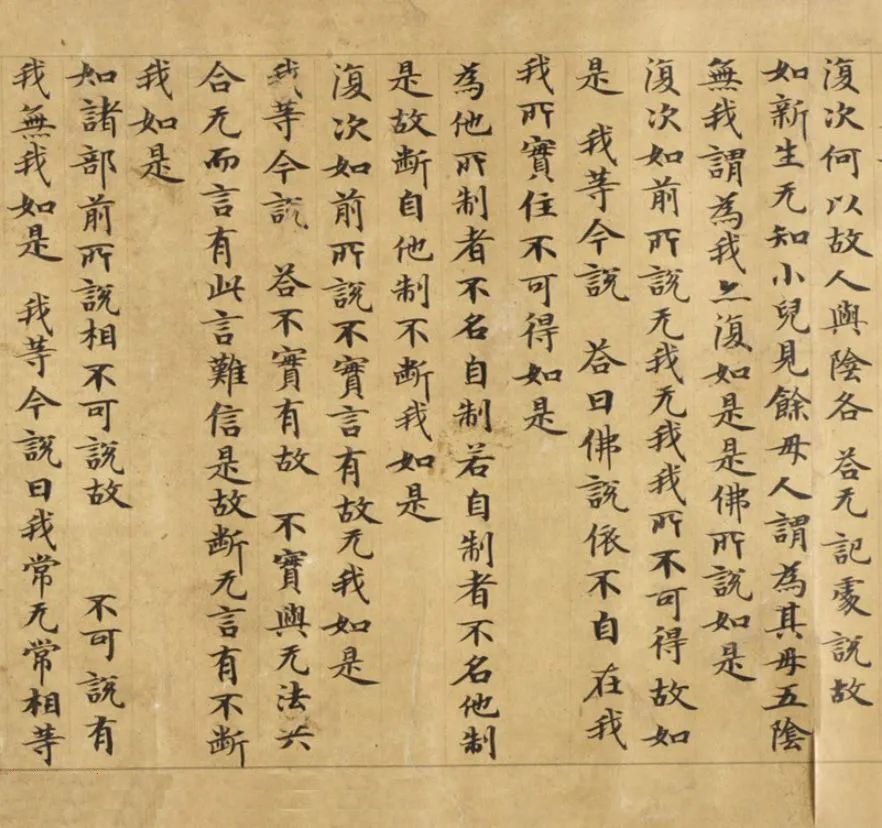 復次何以故人與陰各 荅无記處說故
如新生无知小兒見餘母人謂為其母五陰
無我謂為我亦復如是是佛所說如是
復次如前所說无我无我我所不可得故如
是 我等今說 荅曰佛說依不自在我
我所實住不可得如是
為他所制者不名自制若自制者不名他制
是故断自他制不断我如是
復次如前所說不實言有故无我如是
我等今説 荅不實有故 不實與无法共
合无而言有此言難信是故断无言有不断
我如是
如諸部前所說相不可說故 不可說有
我無我如是 我等今說曰我常无常相等